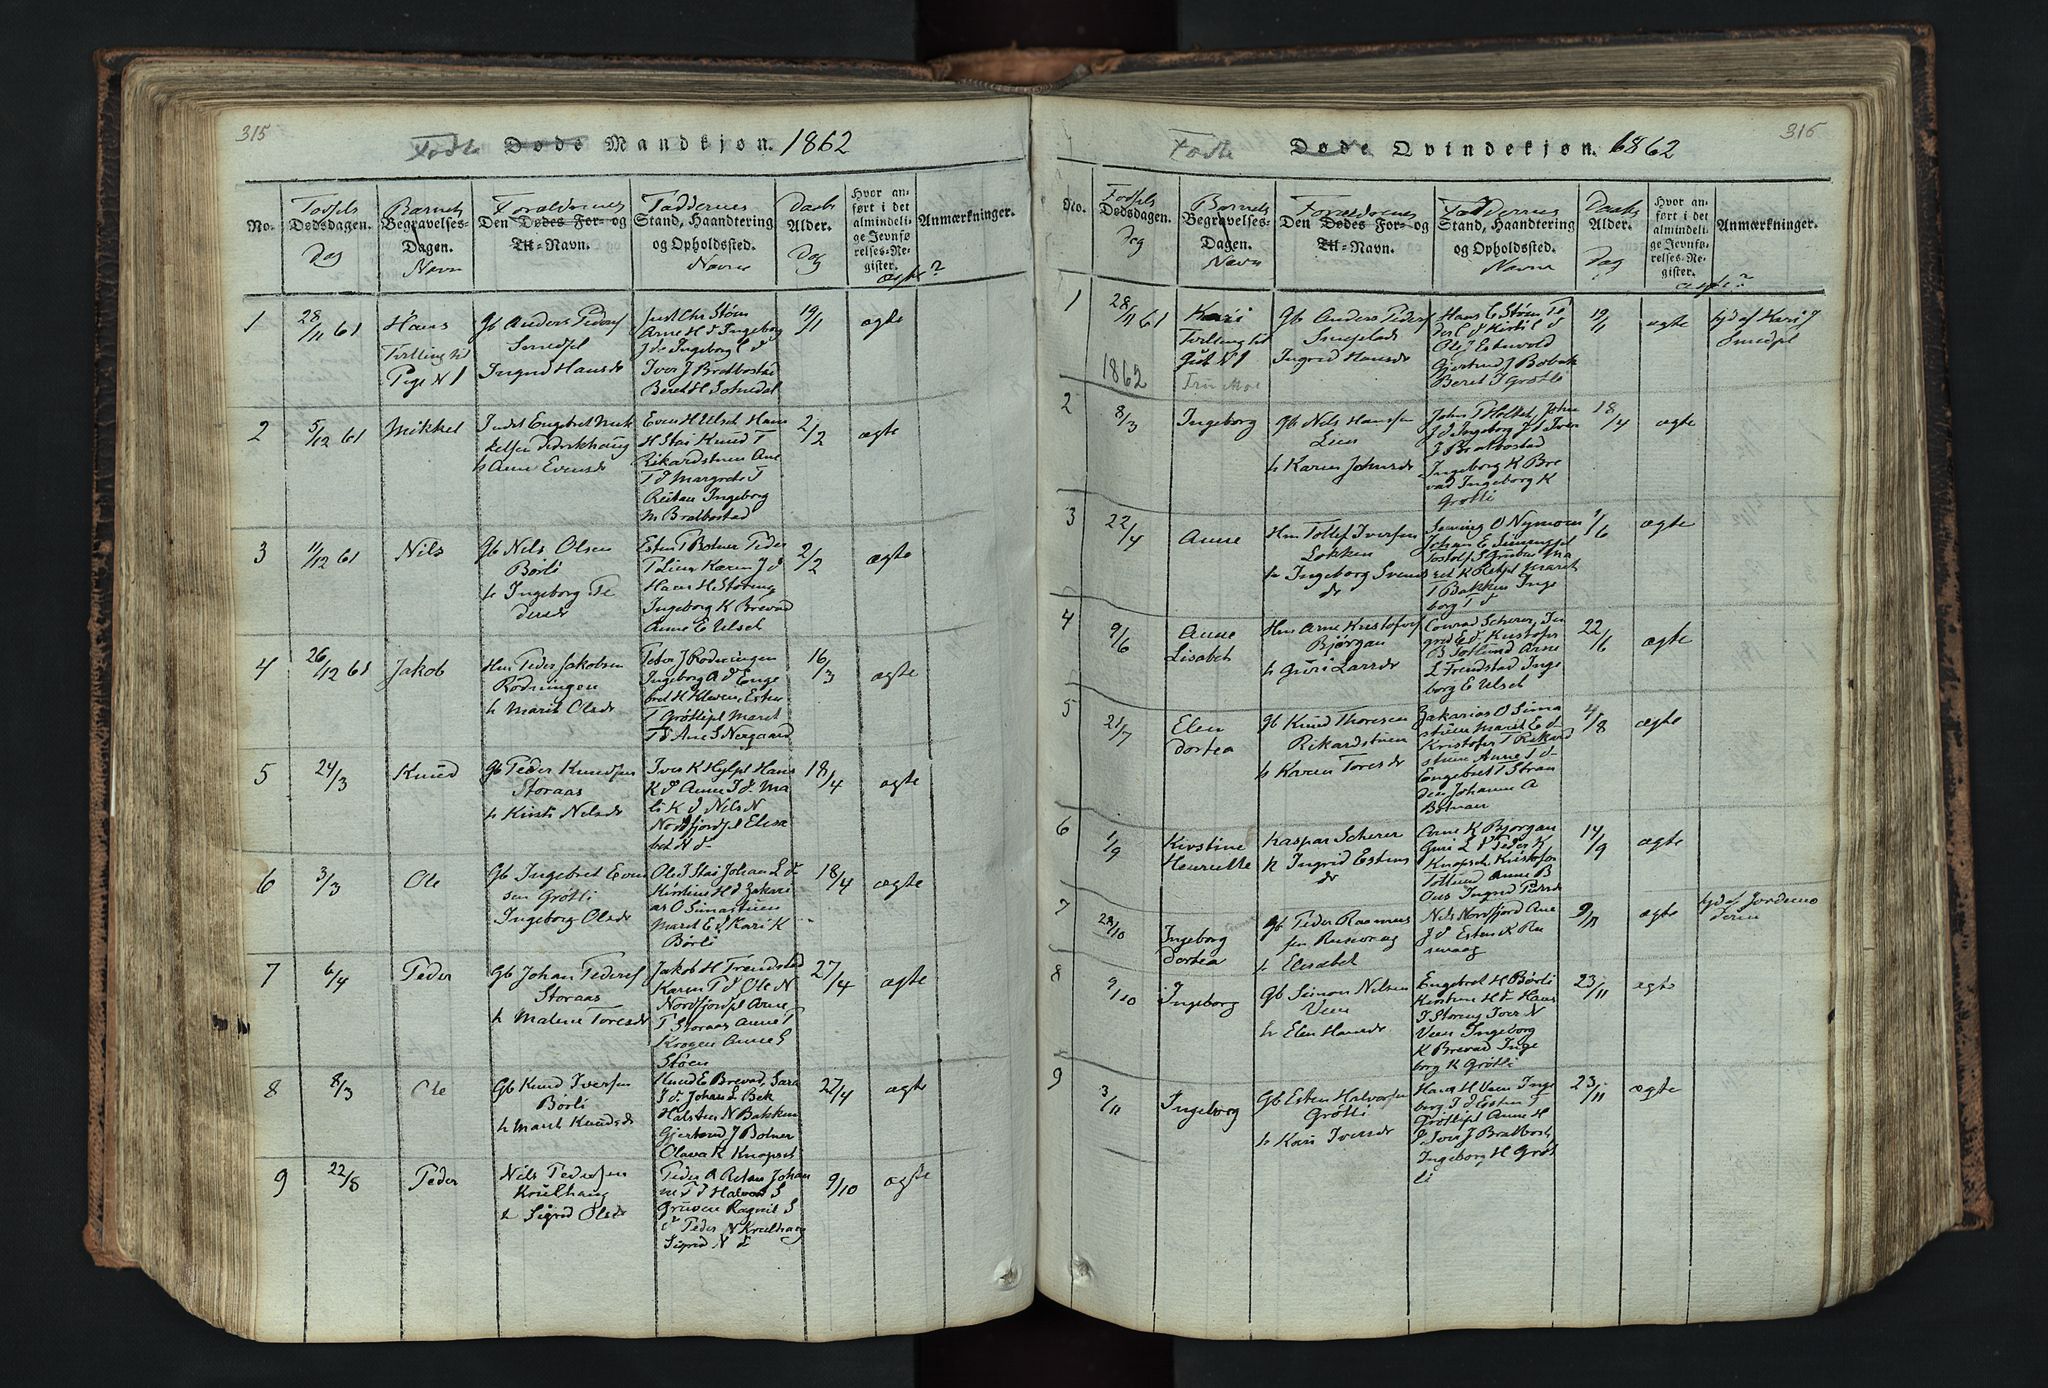 315
Fødte Døde Mandkjøn. 1862
No.
Fødsels
Dødsdagen.
Dag
Barnets
Begravelses-
Dagen.
Navn
Forældrenes
Den Dødes For- og
Til-Navn.
Faddernes
Stand, Haandtering
og Opholdssted.
Navne
Daabs
Alder.
Dag
Hvor an-
ført i det
almindeli-
ge Jevnfø-
relses-Re-
gister.
ægte?
Anmærkninger.
1
28/11 61
Hans
Tvilling til
Pige N 1
Gb Anders Peders
Ingrid Hansdr
Arne H d Ingeborg
J dr Ingeborg
Iver J Bratbostad
19/1
ægte
2
5/12 61
Mikkel
Inds Engebret Mik
kelsen
h Anne Evensdr
Even H Ulset Hans
H Stai Knud T
Rikardstuen Ane
T d Margrete T
Reitan Ingeborg
M Bratbostad
2/2
ægte
3
11/12 61
Nils
Gb Nils Olsen
Børli
h Ingeborg Pe
dersdr
Esten T Botner Peder
T Lien Karen J d
Hans H Storeng
Ingeborg K Brevad
Anne E Ulset
2/2
ægte
4
26/12 61
Jakob
Hm Peder Jakobsen
Rødningen
h Marit Olsdr
Peder J Rødningen
Ingeborg A d Enge
bret H Kleven, Esten
T Grøttipl Marit
T d Ane S Nergaard
16/3
ægte
5
24/3
Knud
Gb Peder Knudsen
Storaas
h Kirsti Nilsdr
Iver K Hylpl Hans
K d Anne J d Ma
li K d Nils N
Nordfjordpl Elisa
bet N d
18/4
ægte
6
3/3
Ole
Gb Ingebret Even
sen Grøtli
Ingeborg Olsdr
Ole J Stai Johan L d
Kirstine H d Zakari
as O Simastuen
Marit E d Kari K
Børli
18/4
ægte
7
6/4
Peder
Gb Johan Peders
Storaas
h Malene Toresdr
Jakob H Trondstad
Karen T d Ole N
Nordfjordpl Arne
T Storaas Anne T
Krogen Anne S
Støen
27/4
ægte
8
8/3
Ole
Gb Knud Iversen
Børli
h Marit Knudsdr
Knud E Brevad, Sara
J d Johan L Bek
Halsten N Bakken
Gjertrud J Botner
Olava K Knapset
27/4
ægte
9
22/8
Peder
Nils Pedersen
Kruelhaug
h Sigrid Olsdr
Peder A Reitan Johan
ne T d Halvor S
Gruven Ragnil S
d Peder N Kruelhaug
Sigrid N d
9/10
ægte
316
Fødte Døde Qvindekjøn. 1862
No.
Fødsels
Dødsdagen.
Dag
Barnets
Begravelses-
Dagen.
Navn
Forældrenes
Den Dødes For- og
Til-Navn.
Faddernes
Stand, Haandtering
og Opholdssted.
Navne
Daabs
Alder.
Dag
Hvor an-
ført i det
almindeli-
ge Jevnfø-
relses-Re-
gister.
ægte?
Anmærkninger.
1
28/11 61
Kari
Tvilling til
Gut N 1
Gb Anders Peders
Ingrid Hansdr
Hans E Støen Pe
der L d Kirsti d
Ole J Estenvold
Gjertrud J
Beret J Grøtli
19/1
ægte
1862
2
8/3
Ingeborg
Gb Nils Hansen
Lien
h Karen Johnsdr
John P Holket, John
J d Ingeborg J d Iver
J Bratbostad
Ingeborg K Bre
vad Ingeborg K
Grøtli
18/4
ægte
3
22/4
Anne
Hm Tollef Iversen
Løkken
h Ingeborg Svens
dr
O Nymoen
Johan E
T Bakken Inge
borg T d
1/6
ægte
4
9/6
Anne
Lisabet
Hm Arne Kristofers
Bjørgan
h Guri Larsdr
Conrad Scherer, In
grid E d. Kristofer
B Totlund Arne
L Trondstad Inge
borg E Ulset
22/6
ægte
5
21/7
Elen
Dortea
Gb Knud Thoresen
Rikardstuen
h Karen Toresdr
Zakarias O Sima
stuen Marit E d
Kristofer T Rikard
stuen Anne T d
Engebret T Stran
den Johanne A
Botnen
4/8
ægte
6
1/9
Kirstine
Henriette
Kaspar Scherer
h Ingrid Estens
dr
Arne K Bjørgan
Guri L d Peder K
Knapset. Kristofer
Totlund Anne B
Ous Ingrid Pedersdr
14/9
ægte
7
28/10
Ingeborg
Dortea
Gb Peder Rasmus
sen Rusvaag
h Elisabet
Nils Nordfjord Ane
J d Esten K Ru
svaag
9/11
ægte
hjd af Jordemo
deren
8
9/10
Ingeborg
Gb Simon Nilsen
Veen
h Elen Hansdr
Engebret H Børli
Kirstine H d Hans
J Storeng Iver N
Veen Ingeborg
K Brevad Inge
borg K Grøtli
23/11
ægte
9
3/11
Ingeborg
Gb Esten Halvorsen
Grøtli
h Kari Iversdr
Hans H Veen Inge
borg J d Esten T
Grøttipl Anne H
d. Iver J Bratbost.
Ingeborg H Grøt
li
23/11
ægte